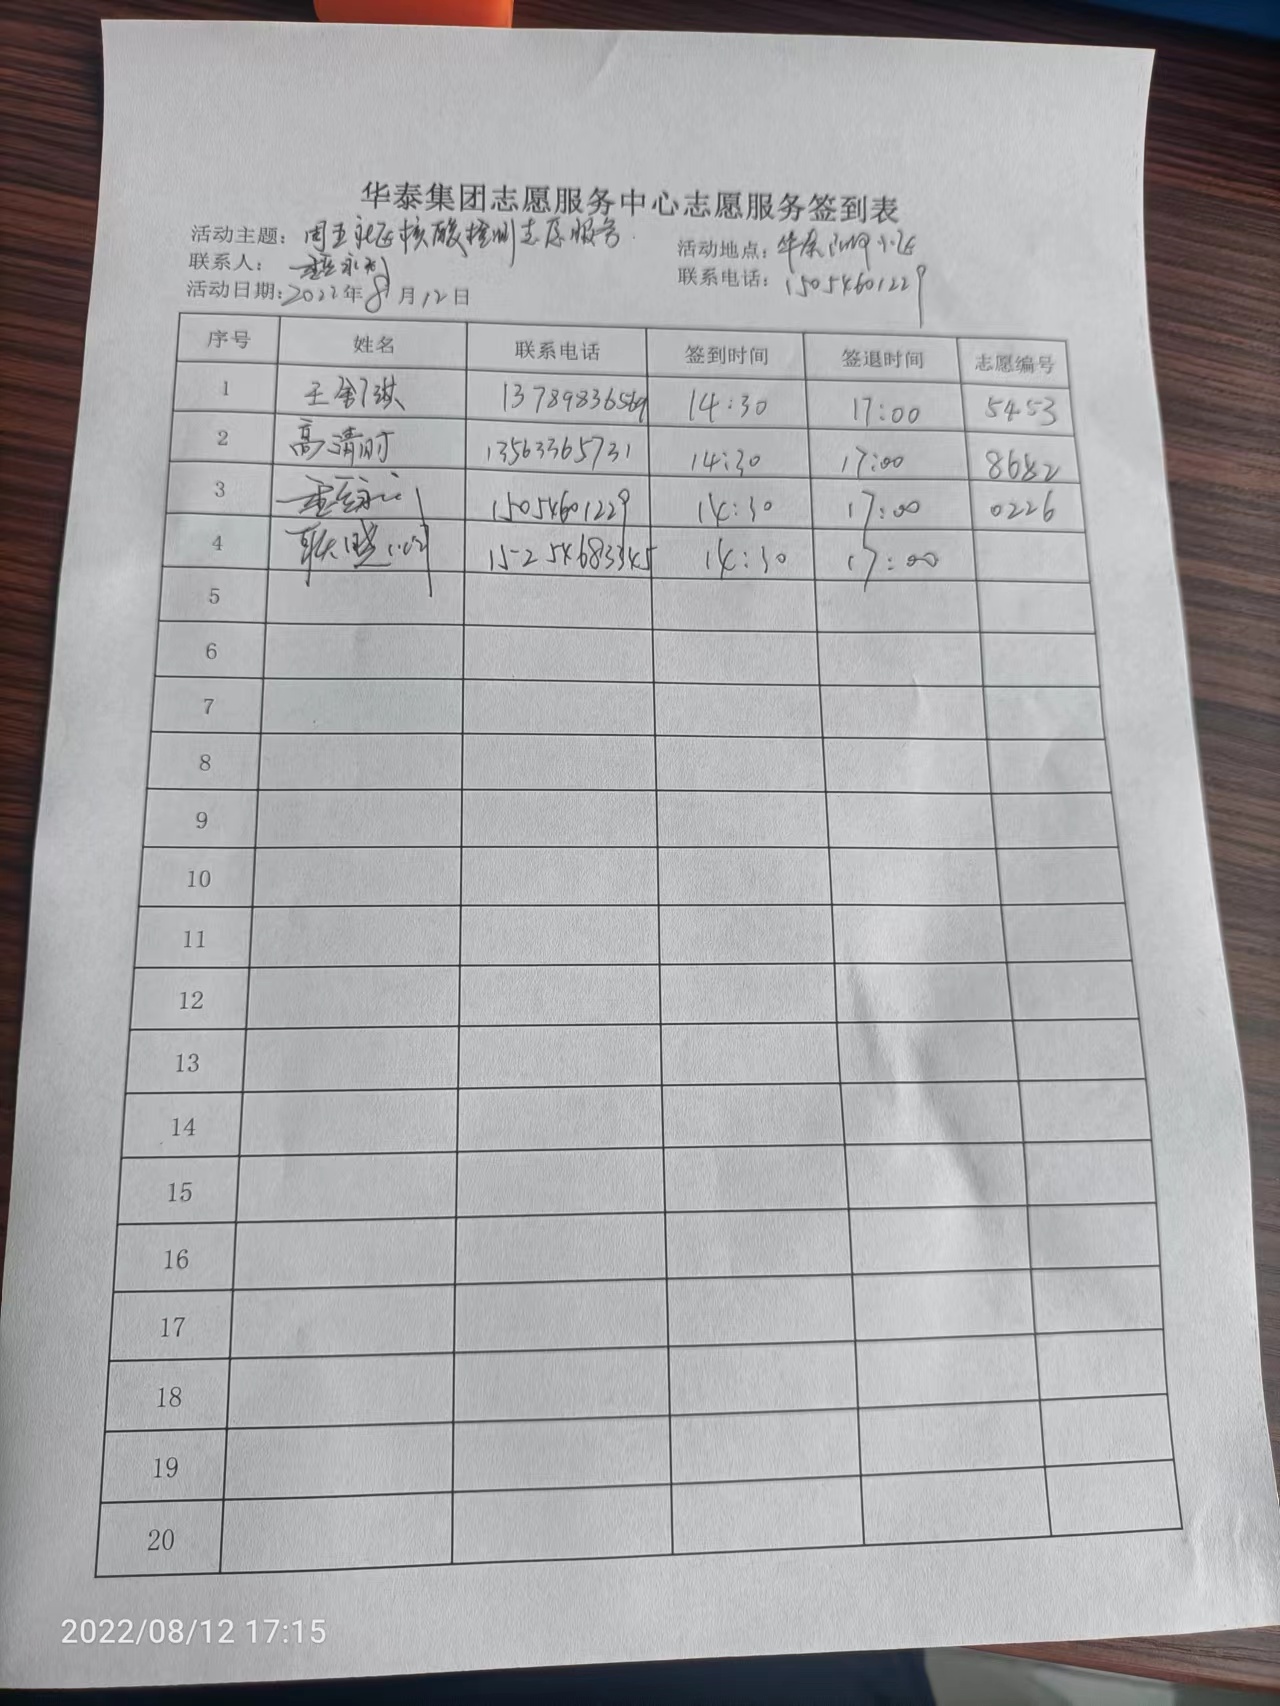 华泰集团志愿服务中心志愿服务签到表
活动主题：周五社区核酸检测志愿服务 活动地点：华泰 小区
联系人： 联系电话：15054601229
活动日期：2022年8月12日
序号 姓名 联系电话 签到时间 签退时间 志愿编号
1 王 琪 13789836569 14:30 17:00 5453
2 高清时 13563365731 14:30 17:00 8682
3 15054601229 14:30 17:00 0226
4 14:30 17:00
5
6
7
8
9
10
11
12
13
14
15
16
17
18
19
20
2022/08/12 17:15